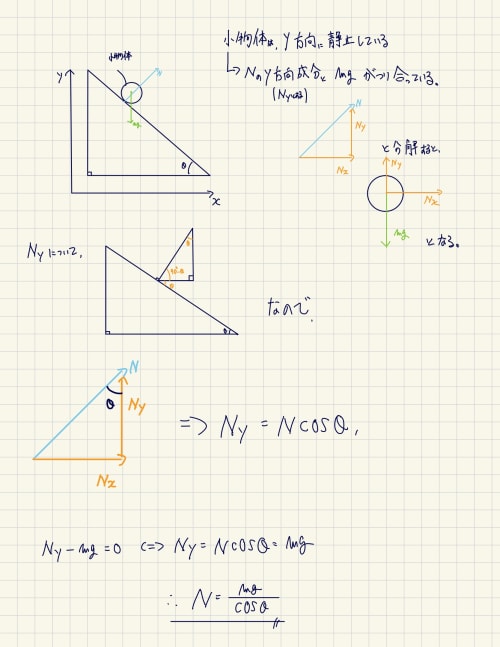 小物体は、y方向に静止している
小物体
N
y
mg
θ
x
↳ Nのy方向成分と mg がつり合っている。
(Nyとする)
N
Ny
Nx
と分解すると、
Ny
Nx
mg
となる。
Nyについて、
θ
90°-θ
θ
θ
なので、
N
θ
Ny
Nx
=> Ny = Ncosθ,
Ny - mg = 0 <=> Ny = Ncosθ = mg
∴ N = mg/cosθ